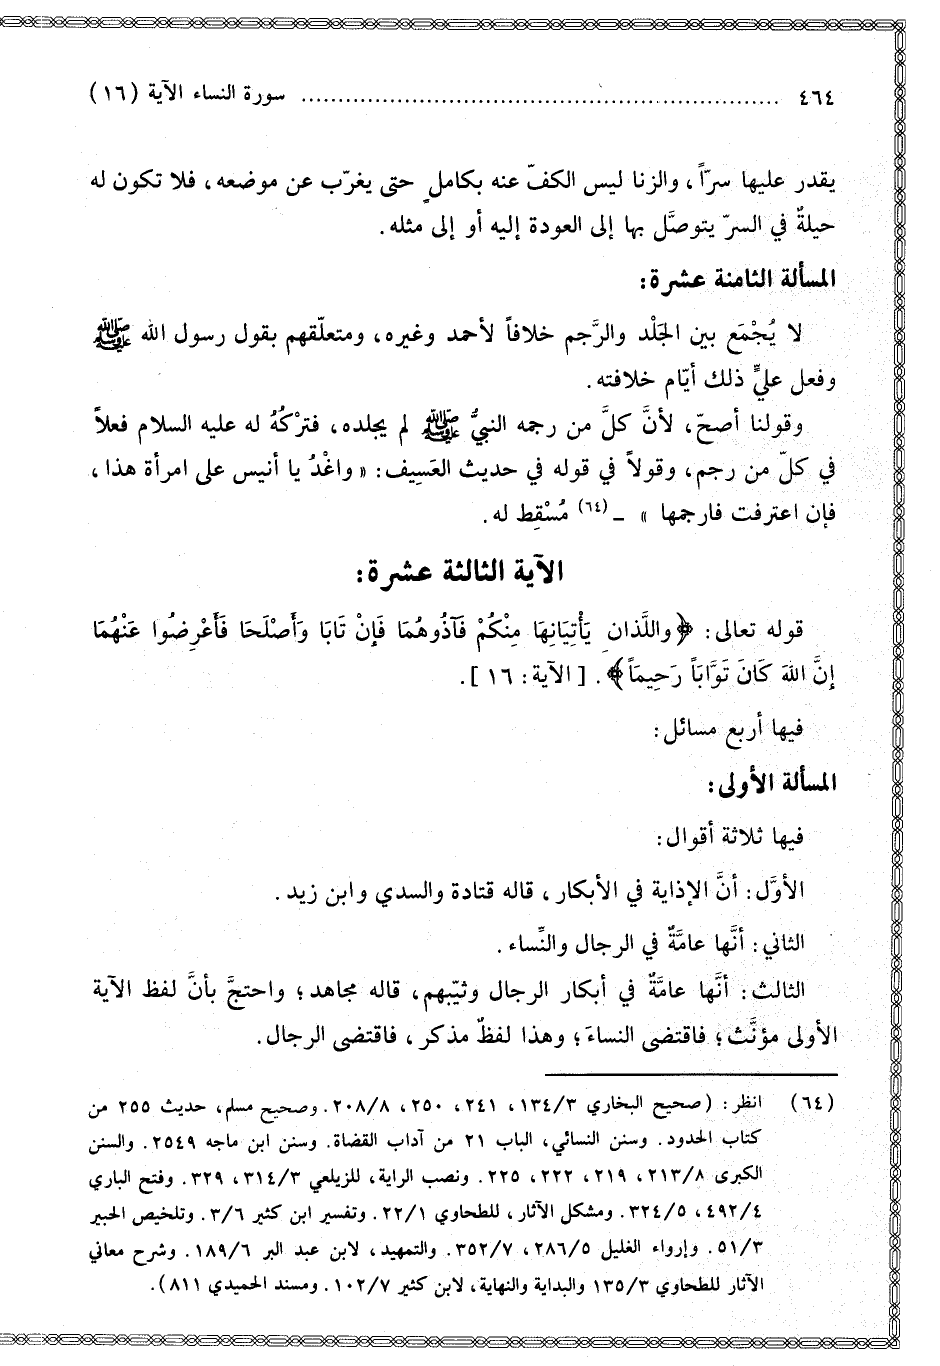 ٤٦٤ ................................................................ سورة النساء الآية (١٦)
يقدر عليها سرّاً، والزنا ليس الكفّ عنه بكاملٍ حتى يغرّب عن موضعه، فلا تكون له
حيلةٌ في السرّ يتوصَّل بها إلى العودة إليه أو إلى مثله.
المسألة الثامنة عشرة:
لا يُجْمَع بين الجَلْد والرَّجم خلافاً لأحمد وغيره، ومتعلّقهم بقول رسول الله ﷺ
وفعل عليٍّ ذلك أيّام خلافته.
وقولنا أصحّ، لأنَّ كلَّ من رجمه النبيُّ ﷺ لم يجلده، فترْكُهُ له عليه السلام فعلاً
في كلّ من رجم، وقولاً في قوله في حديث العَسِيف: «واغْدُ يا أنيس على امرأة هذا،
فإن اعترفت فارجمها» ـ(٦٤) مُسْقِط له.
الآية الثالثة عشرة:
قوله تعالى: ﴿واللَّذانِ يَأْتِيَانِهَا مِنْكُمْ فَآذُوهُمَا فَإنْ تَابَا وَأَصْلَحَا فَأَعْرِضُوا عَنْهُمَا
إنَّ اللهَ كَانَ تَوَّابَاً رَحِيمَاً﴾. [الآية: ١٦].
فيها أربع مسائل:
المسألة الأولى:
فيها ثلاثة أقوال:
الأوَّل: أنَّ الإذاية في الأبكار، قاله قتادة والسدي وابن زيد.
الثاني: أنَّها عامَّةٌ في الرجال والنِّساء.
الثالث: أنَّها عامَّةٌ في أبكار الرجال وثيّبهم، قاله مجاهد؛ واحتجَّ بأنَّ لفظ الآية
الأولى مؤنَّث؛ فاقتضى النساءَ؛ وهذا لفظٌ مذكر، فاقتضى الرجال.
(٦٤) انظر: (صحيح البخاري ١٣٤/٣، ٢٤١، ٢٥٠، ٢٠٨/٨. وصحيح مسلم، حديث ٢٥٥ من
كتاب الحدود. وسنن النسائي، الباب ٢١ من آداب القضاة. وسنن ابن ماجه ٢٥٤٩. والسنن
الكبرى ٢١٣/٨، ٢١٩، ٢٢٢، ٢٢٥. ونصب الراية، للزيلعي ٣١٤/٣، ٣٢٩. وفتح الباري
٤٩٢/٤، ٣٢٤/٥. ومشكل الآثار، للطحاوي ٢٢/١. وتفسير ابن كثير ٣/٦. وتلخيص الحبير
٥١/٣. وإرواء الغليل ٢٨٦/٥، ٣٥٢/٧. والتمهيد، لابن عبد البر ١٨٩/٦. وشرح معاني
الآثار للطحاوي ١٣٥/٣ والبداية والنهاية، لابن كثير ١٠٢/٧. ومسند الحميدي ٨١١).